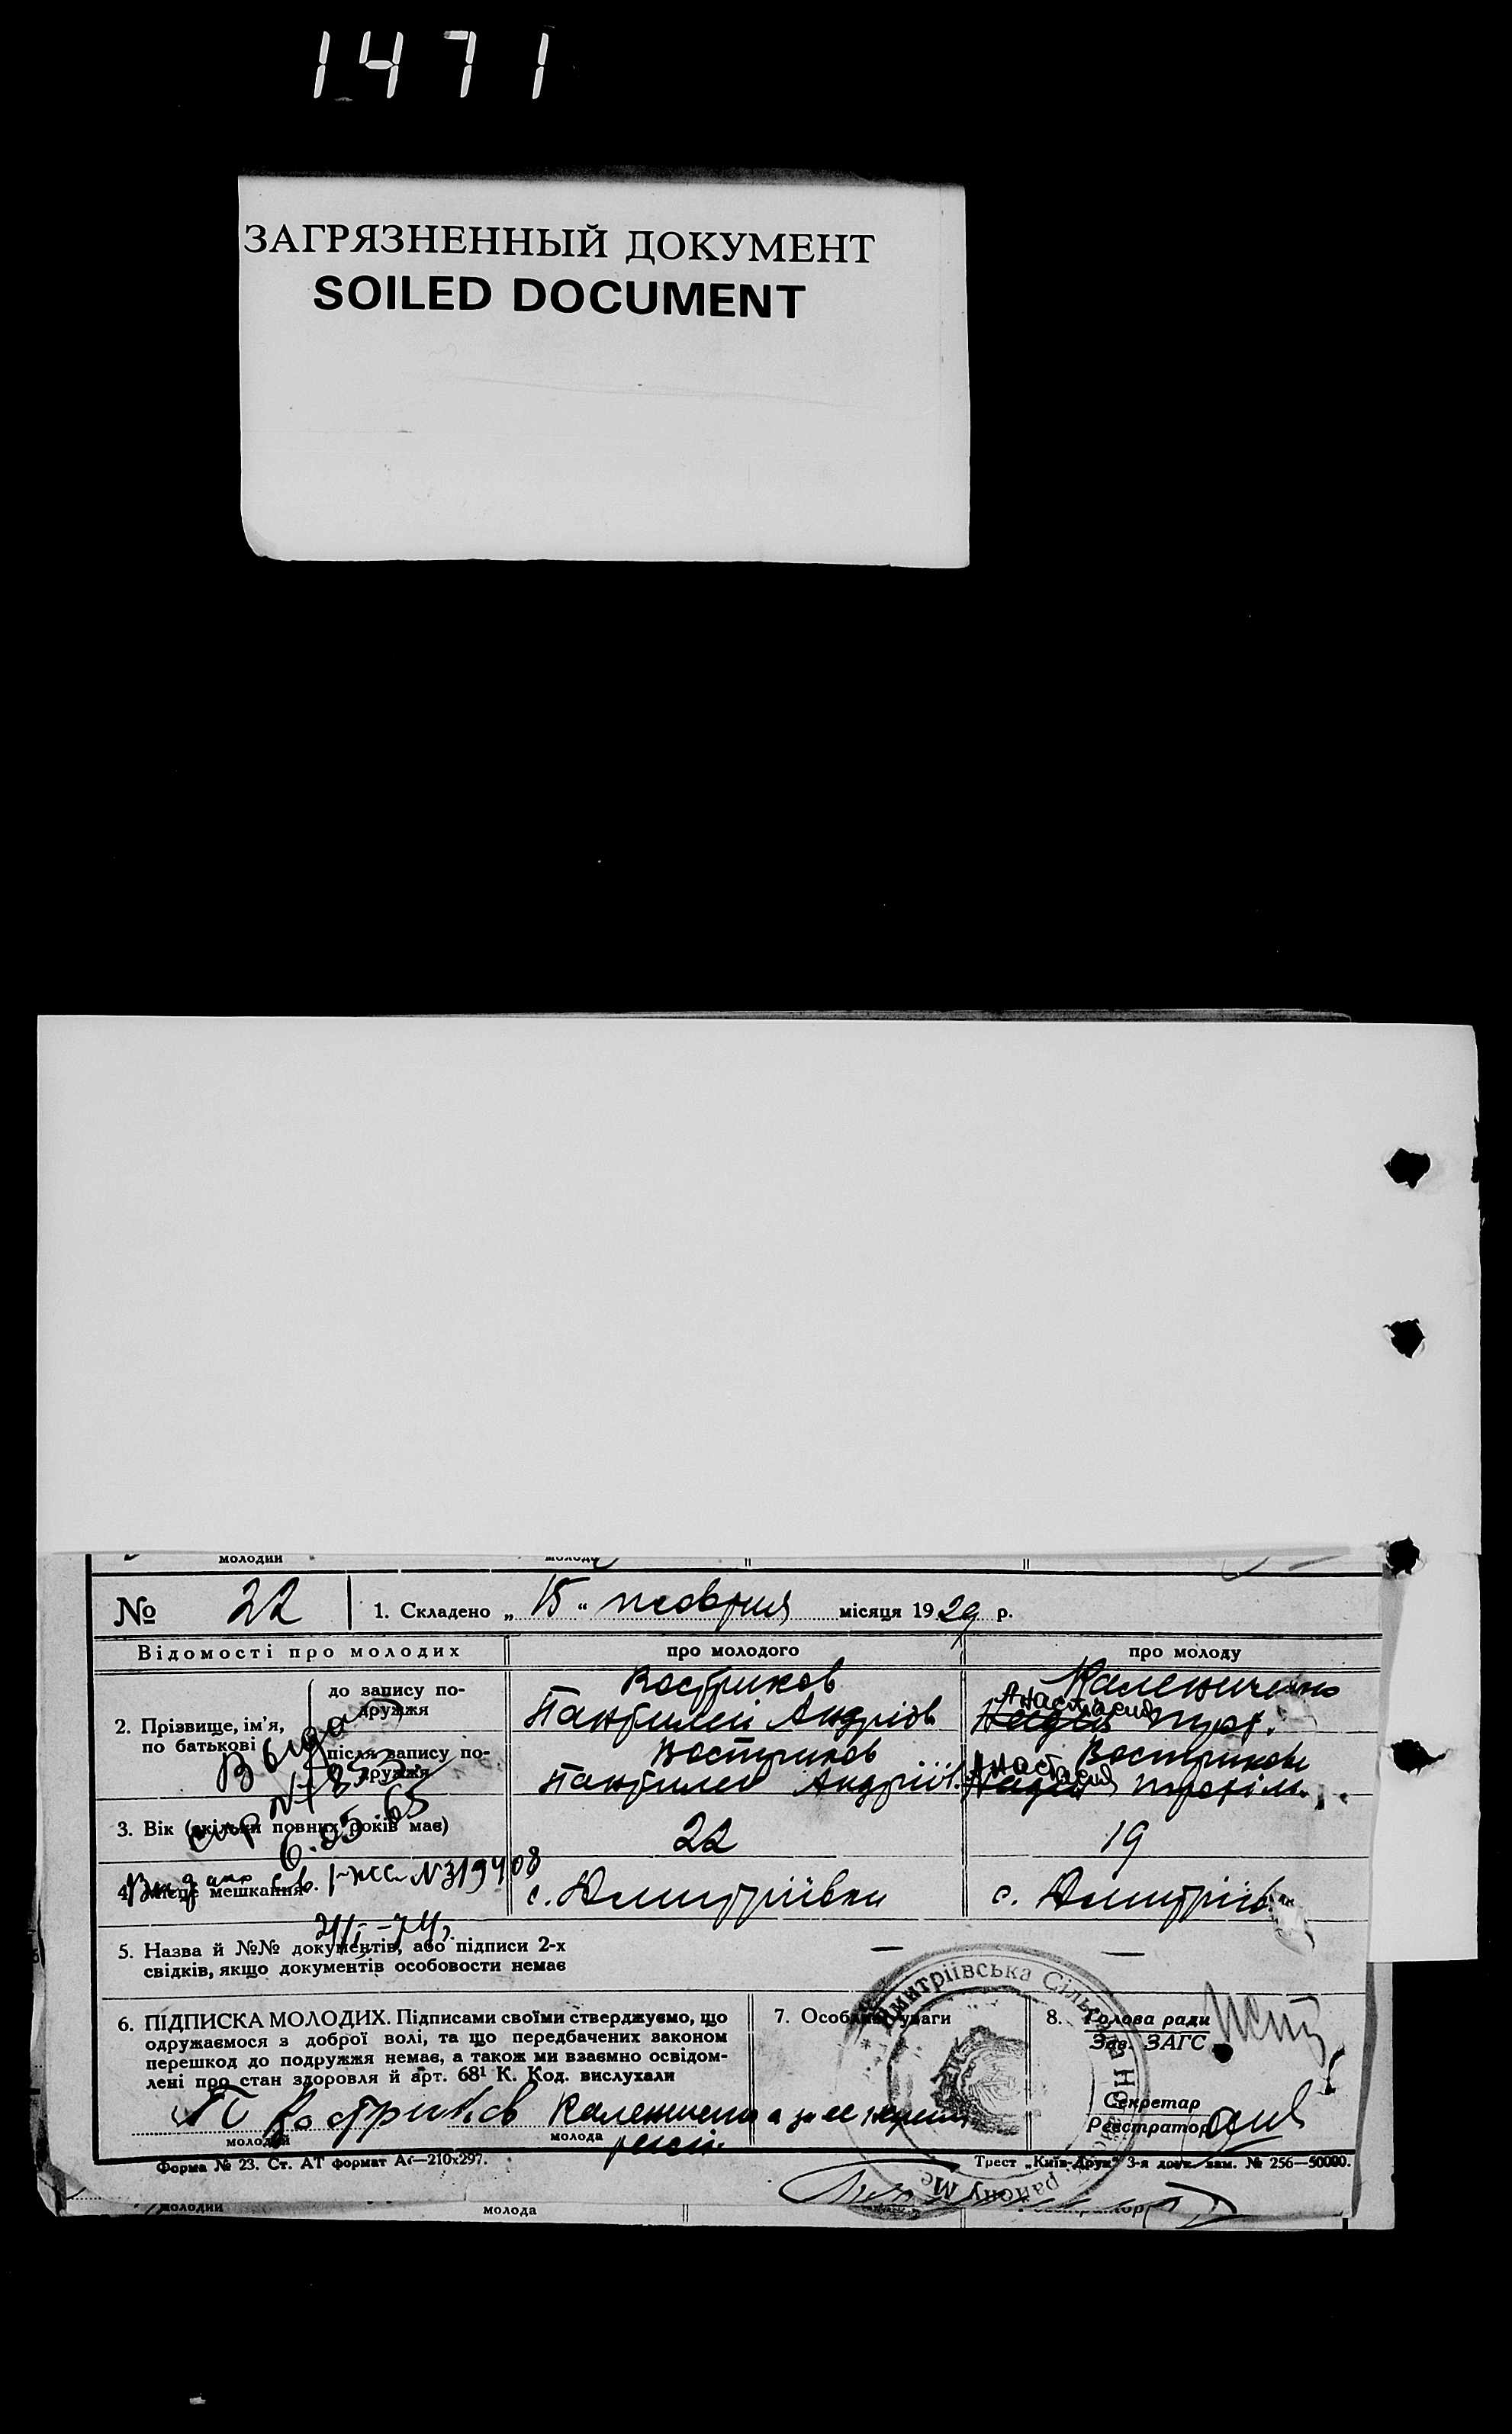 1471
ЗАГРЯЗНЕННЫЙ ДОКУМЕНТ
SOILED DOCUMENT
молодий
№ 22
1. Складено „ 15 “ жовтня місяця 1929 р.
Відомості про молодих
про молодого
про молоду
2. Прізвище, ім'я, по батькові
до запису подружжя
Востриков
Пантилей Андріїв
Калениченко
Анастасия
після запису подружжя
Востриков
Пантилей Андріїв
Вострикова
Анастасия
Выдано
6.05.65
3. Вік (скільки повних років має)
22
19
4. Місце мешкання
№319408
с. Дмитріївка
с. Дмитріїв
5. Назва й №№ документів, або підписи 2-х
свідків, якщо документів особовости немає
— —
6. ПІДПИСКА МОЛОДИХ. Підписами своїми стверджуємо, що
одружаємося з доброї волі, та що передбачених законом
перешкод до подружжя немає, а також ми взаємно освідом-
лені про стан здоровля й арт. 68¹ К. Код. вислухали
П Востриков
молодий
молода
7. Особливі уваги
8. Голова ради
Зав. ЗАГС
Секретар
Реєстратор
Дмитріївська Сільс
району Ме
Форма № 23. Ст. АТ формат А₄—210x297.
Трест „Київ-Друк“ 3-я друк. зам. № 256—50000.
молодий
молода